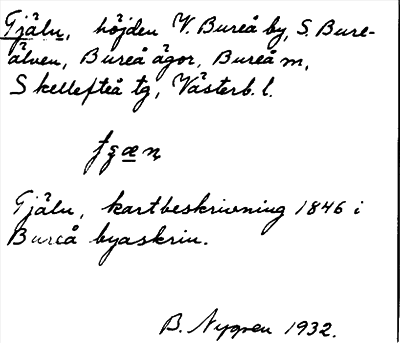 Tjäln, höjden V. Bureå by, S. Bure-
älven, Bureå ägor, Bureå m,
Skellefteå tg, Västerb. l.
Tjäln, kartbeskrivning 1846 i
Bureå byaskrin.
B. Nygren 1932.